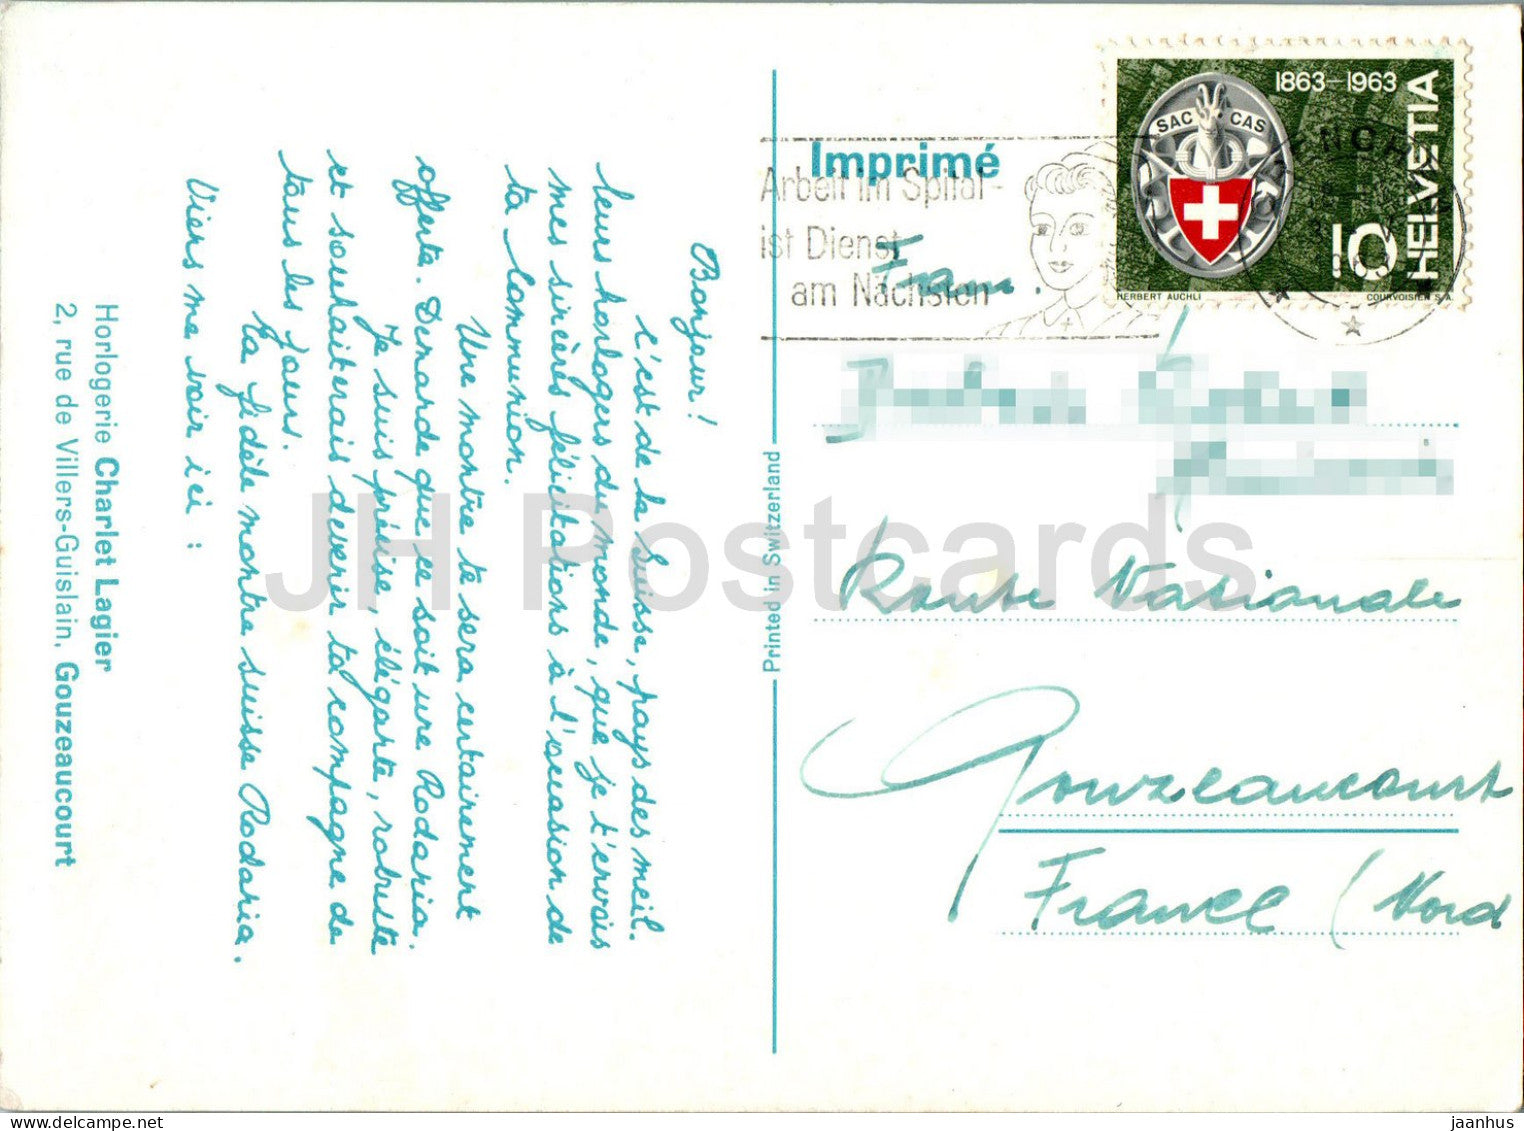 Bonjour!
C'est de la Suisse, pays des meil.
leurs horlogers du monde, que je t'envois
mes sincères félicitations à l'occasion de
ta Communion.
Une montre te sera certainement
offerte. Demande que ce soit une Rodaria.
Je suis précise, élégante, robuste
et souhaiterais devenir ta compagne de
tous les jours.
Ta fidèle montre suisse Rodaria.
Viens me voir ici :
Horlogerie Charlet Lagier
2, rue de Villers-Guislain, Gouzeaucourt
Printed in Switzerland
Imprimé
Arbeit im Spital -
ist Dienst
am Nächsten
1863-1963
SAC CAS
HELVETIA
10
HERBERT AUCHLI
COURVOISIER S.A.
Route Nationale
Gouzeaucourt
France (Nord
JH Postcards
jaanhus @ delcampe.net